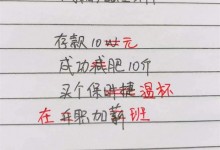 存款10w元
成功减肥10斤
买个保时捷温杯
在升职加薪班